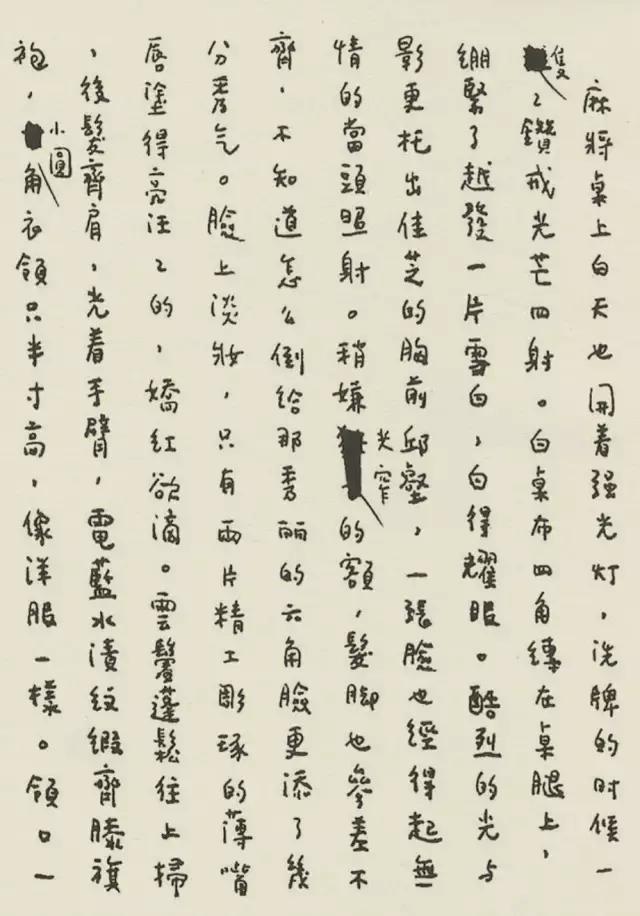 麻將桌上白天也開着强光灯，洗牌的时候一
隻〻鑽戒光芒四射。白桌布四角縛在桌腿上，
绷緊了越發一片雪白，白得耀眼。酷烈的光与
影更托出佳芝的胸前邱壑，一張臉也經得起無
情的當頭照射。稍嫌尖窄的額，髮脚也參差不
齊，不知道怎么倒給那秀丽的六角臉更添了幾
分秀气。臉上淡妝，只有兩片精工彫琢的薄嘴
唇塗得亮汪〻的，嬌紅欲滴。雲鬢蓬鬆往上掃
，後髮齊肩，光着手臂，電藍水漬紋緞齊膝旗
袍，小圓角衣領只半寸高，像洋服一樣。領口一